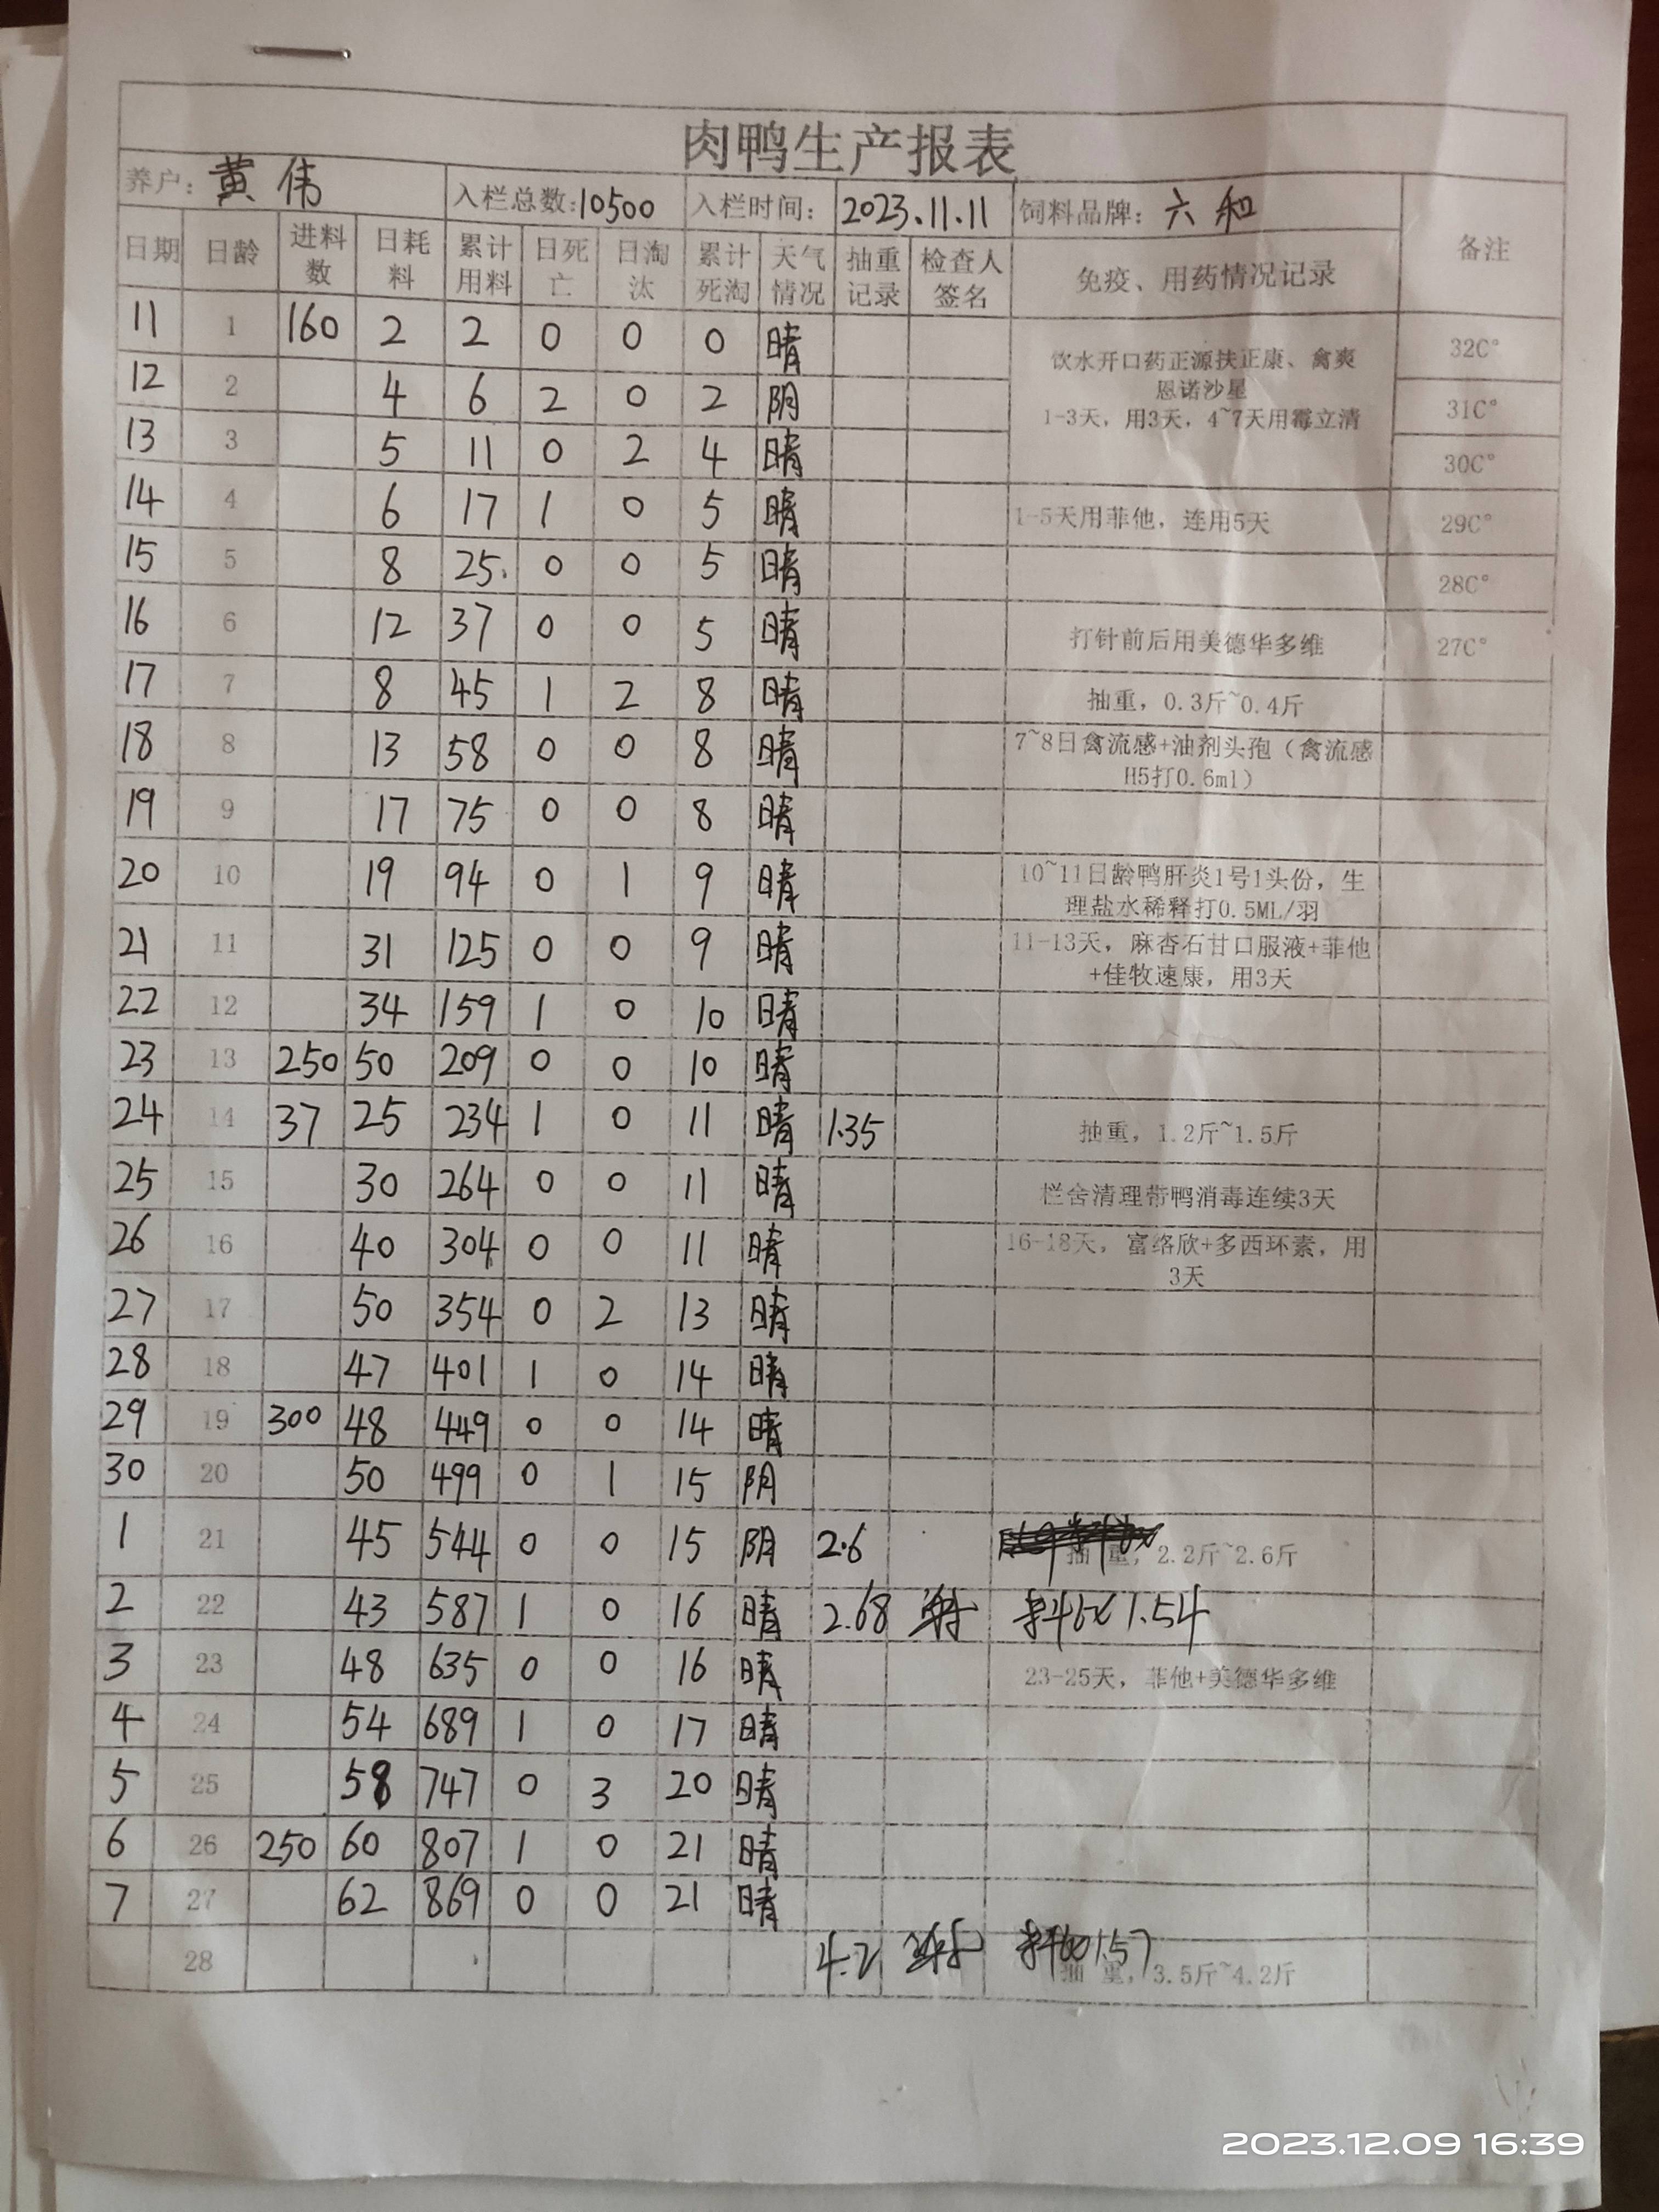 肉鸭生产报表
养户：黄伟 入栏总数：10500 入栏时间： 2023.11.11 饲料品牌：六和 备注
日期 日龄 进料数 日耗料 累计用料 日死亡 日淘汰 累计死淘 天气情况 抽重记录 检查人签名 免疫、用药情况记录
11 1 160 2 2 0 0 0 晴 32C°
饮水开口药正源扶正康、禽爽
恩诺沙星
1-3天，用3天，4~7天用霉立清
12 2 4 6 2 0 2 阴 31C°
13 3 5 11 0 2 4 晴 30C°
14 4 6 17 1 0 5 晴 1-5天用菲他，连用5天 29C°
15 5 8 25 0 0 5 晴 28C°
16 6 12 37 0 0 5 晴 打针前后用美德华多维 27C°
17 7 8 45 1 2 8 晴 抽重，0.3斤~0.4斤
18 8 13 58 0 0 8 晴 7~8日禽流感+油剂头孢（禽流感
H5打0.6ml）
19 9 17 75 0 0 8 晴
20 10 19 94 0 1 9 晴 10~11日龄鸭肝炎1号1头份，生
理盐水稀释打0.5ML/羽
21 11 31 125 0 0 9 晴 11-13天，麻杏石甘口服液+菲他
+佳牧速康，用3天
22 12 34 159 1 0 10 晴
23 13 250 50 209 0 0 10 晴
24 14 37 25 234 1 0 11 晴 1.35 抽重，1.2斤~1.5斤
25 15 30 264 0 0 11 晴 栏舍清理带鸭消毒连续3天
26 16 40 304 0 0 11 晴 16-18天，富络欣+多西环素，用
3天
27 17 50 354 0 2 13 晴
28 18 47 401 1 0 14 晴
29 19 300 48 449 0 0 14 晴
30 20 50 499 0 1 15 阴
1 21 45 544 0 0 15 阴 2.6 抽重，2.2斤~2.6斤
2 22 43 587 1 0 16 晴 2.68 1.54
3 23 48 635 0 0 16 晴 23-25天，菲他+美德华多维
4 24 54 689 1 0 17 晴
5 25 58 747 0 3 20 晴
6 26 250 60 807 1 0 21 晴
7 27 62 869 0 0 21 晴
28 4.2 1.57
抽重，3.5斤~4.2斤
2023.12.09 16:39